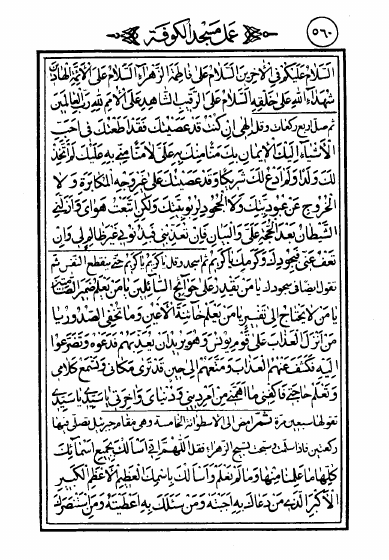 ٥٦٠
عمل مسجد الكوفة
السلام عليكم في الآخرين السلام على فاطمة الزهراء السلام على الأئمة الهادين
شهداء الله على خلقه السلام على الرقيب الشاهد على الأمم لله رب العالمين
ثم صل اربع ركعات وقل الهي ان كنت قد عصيتك فقد اطعتك في احب
الأشياء اليك الايمان بك منا منك به علي لا منا مني به عليك لم اتخذ
لك ولدا ولم ادع لك شريكا وقد عصيتك على غير وجه المكابرة ولا
الخروج عن عبوديتك ولا الجحود لربوبيتك ولكن اتبعت هواي وازلني
الشيطان بعد الحجة علي والبيان فان تعذبني فبذنوبي غير ظالم لي وان
تعف عني فبجودك وكرمك يا كريم ثم اسجد وقل يا كريم يا كريم حتى ينقطع النفس ثم
تقول ايضا في سجودك يا من يقدر على حوائج السائلين يا من يعلم ضمير الصامتين
يا من لا يحتاج الى تفسير يا من يعلم خائنة الأعين وما تخفي الصدور يا
من انزل العذاب على قوم يونس وهو يريد ان يعذبهم فدعوه وتضرعوا
اليه فكشف عنهم العذاب ومتعهم الى حين قد ترى مكاني وتسمع كلامي
وتعلم حاجتي فاكفني ما اهمني من امر ديني ودنياي وآخرتي يا سيدي يا سيدي
تقولها سبعين مرة ثم امض الى الاسطوانة الخامسة وهي مقام جبرئيل فصل فيها
ركعتين فاذا سلمت وسبحت تسبيح الزهراء فقل اللهم اني اسألك بجميع اسمائك
كلها ما علمنا منها وما لم نعلم واسألك باسمك العظيم الأعظم الكبير
الأكبر الذي من دعاك به اجبته ومن سئلك به اعطيته ومن استنصرك